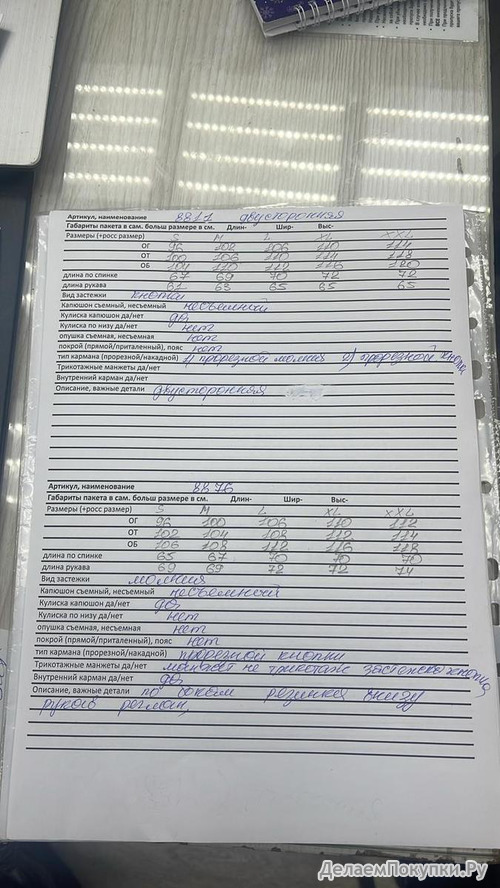 Артикул, наименование 8811 двусторонняя
Габариты пакета в сам. больш размере в см. Длин- Шир- Выс-
Размеры (+росс размер) S M L XL XXL
ОГ 96 102 106 110 114
ОТ 100 106 110 114 118
ОБ 104 110 112 116 120
длина по спинке 67 69 70 72 72
длина рукава 61 63 65 65 65
Вид застежки кнопки
Капюшон съемный, несъемный несъемный
Кулиска капюшон да/нет да
Кулиска по низу да/нет нет
опушка съемная, несъемная нет
покрой (прямой/приталенный), пояс нет
тип кармана (прорезной/накладной) 1) прорезной молния 2) прорезной кнопка
Трикотажные манжеты да/нет
Внутренний карман да/нет
Описание, важные детали двусторонняя
Артикул, наименование 8876
Габариты пакета в сам. больш размере в см. Длин- Шир- Выс-
Размеры (+росс размер) S M L XL XXL
ОГ 96 100 106 110 112
ОТ 102 104 108 112 114
ОБ 106 108 112 116 118
длина по спинке 65 67 70 70 70
длина рукава 69 69 72 72 74
Вид застежки молния
Капюшон съемный, несъемный несъемный
Кулиска капюшон да/нет да
Кулиска по низу да/нет нет
опушка съемная, несъемная нет
покрой (прямой/приталенный), пояс нет
тип кармана (прорезной/накладной) прорезной кнопки
Трикотажные манжеты да/нет манжет не трикотаж застежка кнопка,
Внутренний карман да/нет да
Описание, важные детали по бокам резинка внизу
рукав реглан,
ДелаемПокупки.Ру